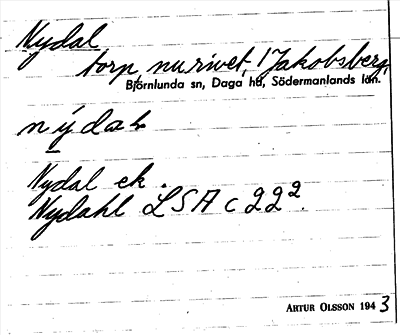 Nydal
torp, nu rivet, / Jakobsberg,
Björnlunda sn, Daga hd, Södermanlands län.
Nydal ek.
Nydahl LSA C 22²
ARTUR OLSSON 1943